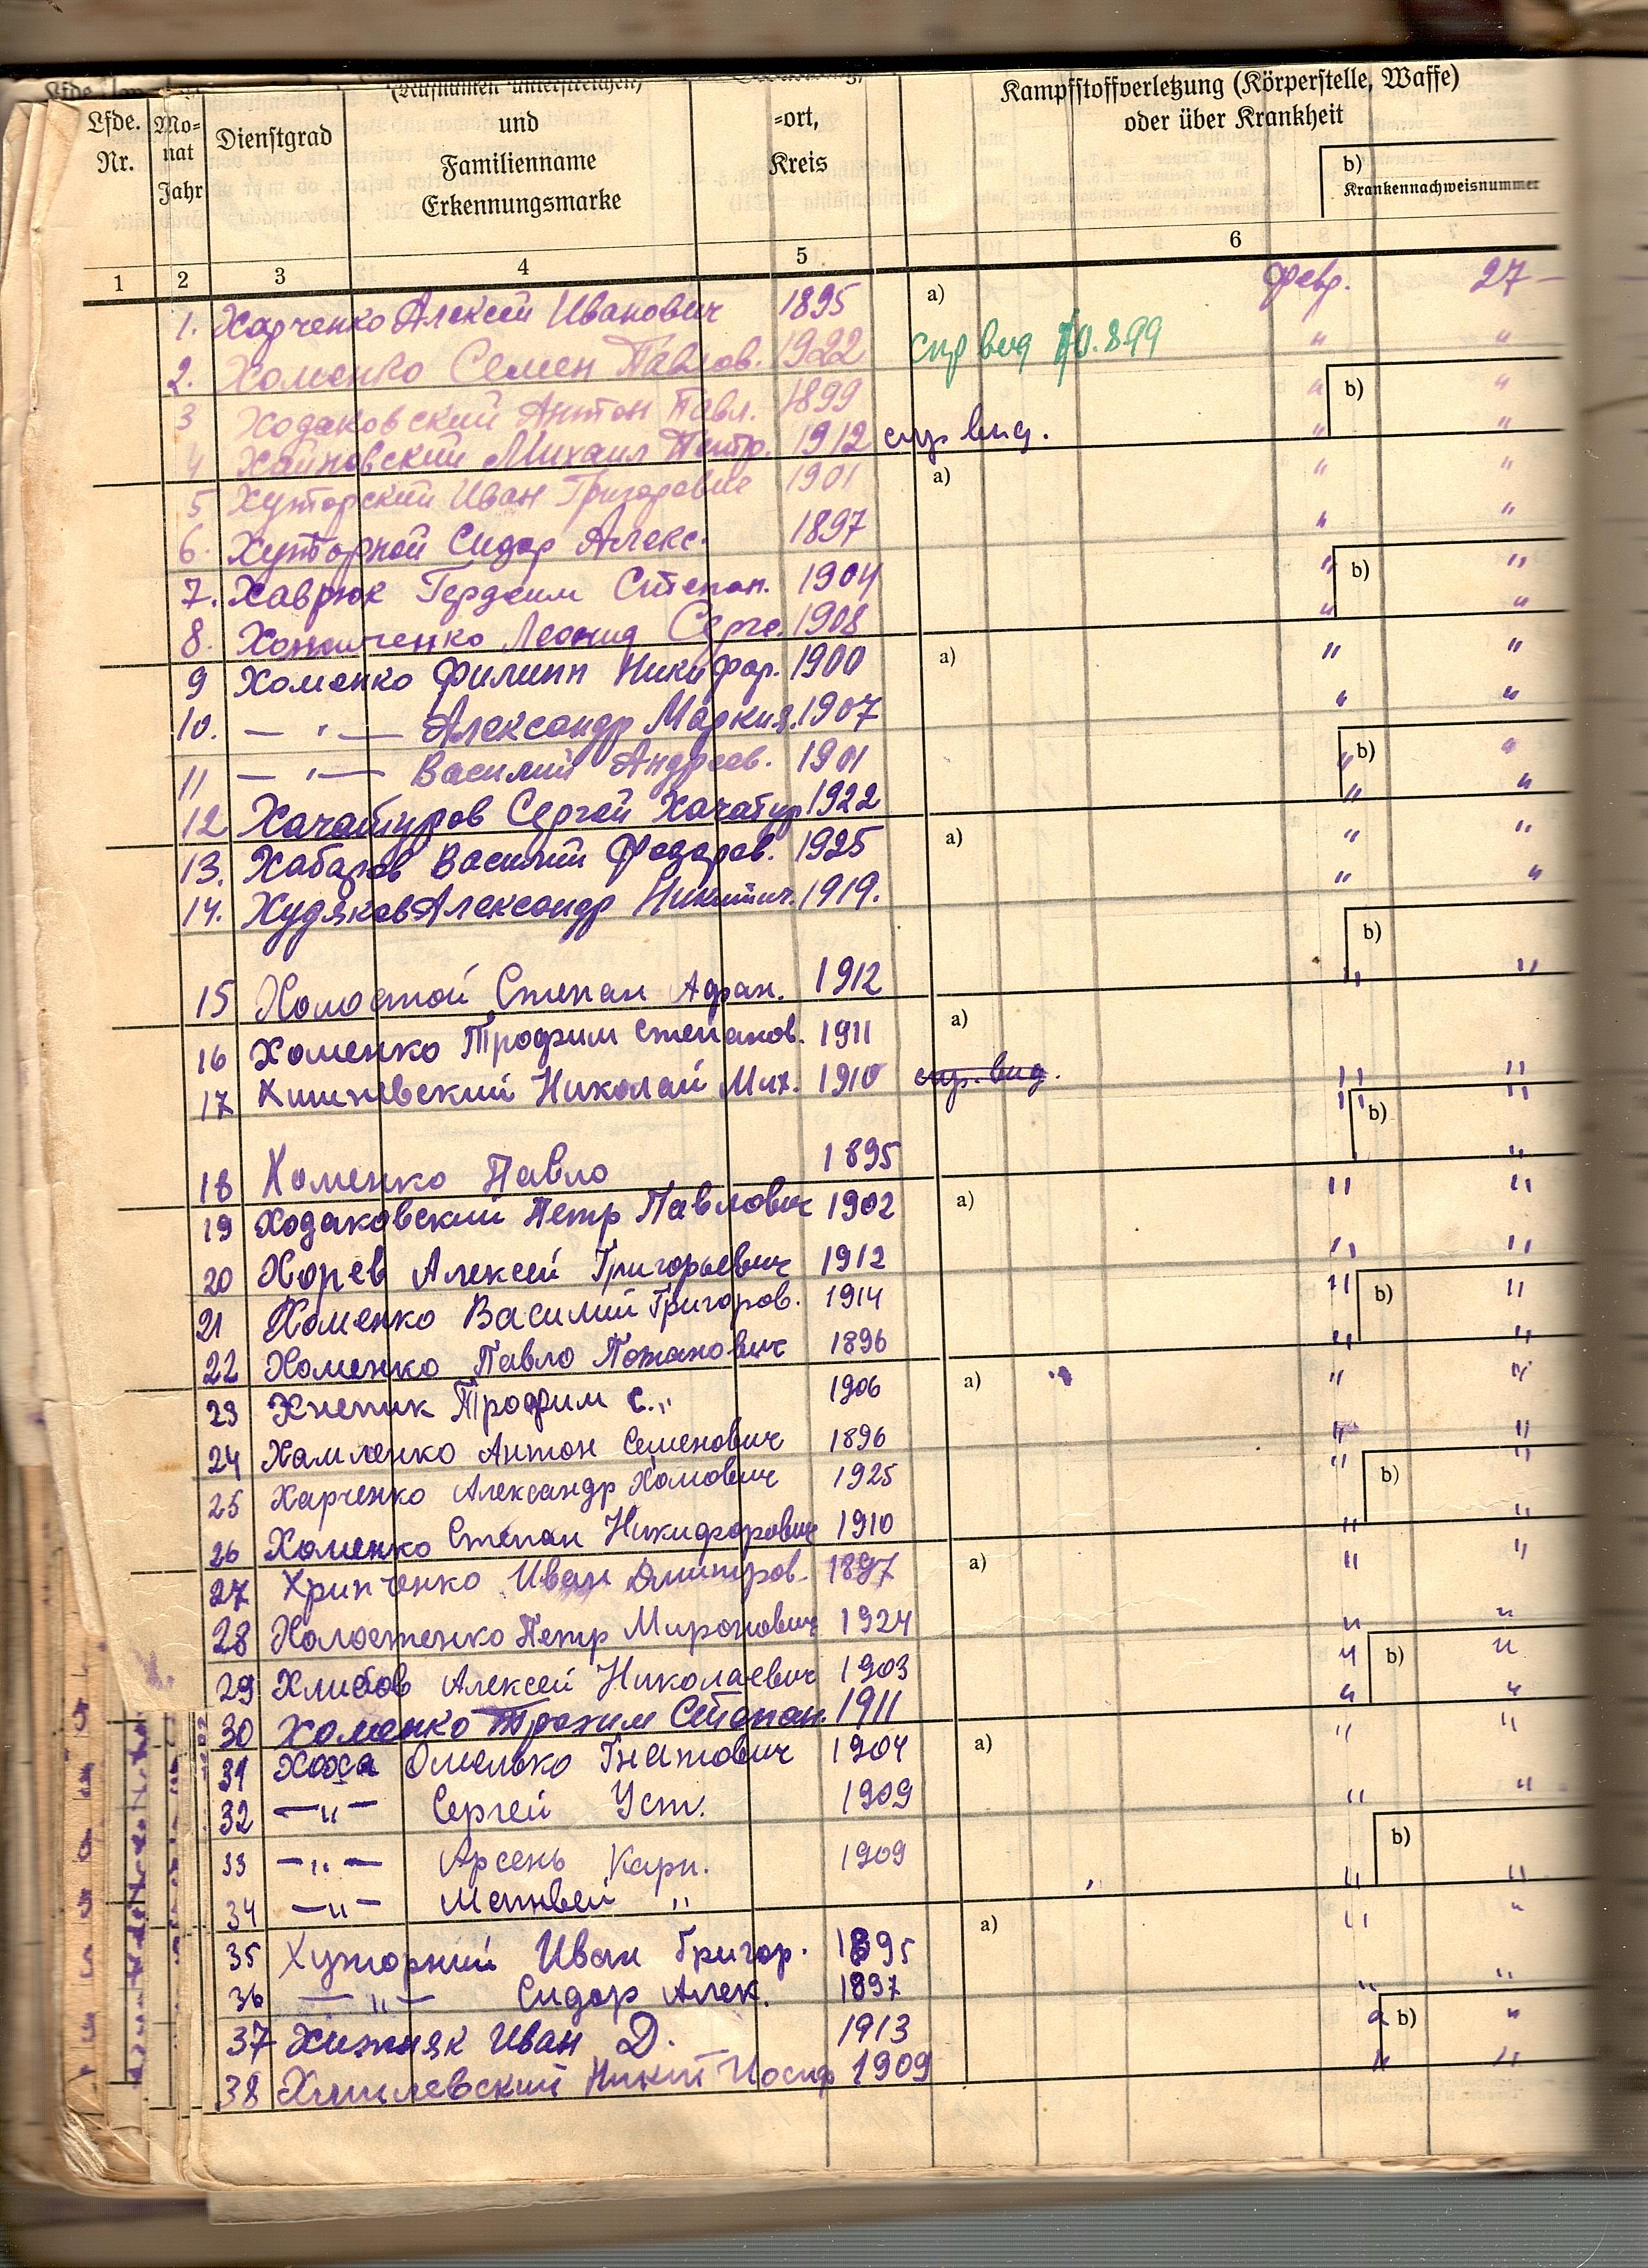 Lfde. Nr.
Mo-
nat
Jahr
Dienstgrad
(Rufnamen unterstreichen)
und
Familienname
Erkennungsmarke
-ort,
Kreis
Kampfstoffverletzung (Körperstelle, Waffe)
oder über Krankheit
b)
Krankennachweisnummer
1 2 3 4 5 6
1. Харченко Алексей Иванович 1895 a) февр. 27 –
2. Хоменко Семен Павлов. 1922 спр вид 70.899 " "
3 Ходаковский Антон Павл. 1899 " b) "
4 Хайновский Михаил Петр. 1912 спр вид. " "
5 Хуторский Иван Григоревич 1901 a) " "
6. Хуторной Сидор Алекс. 1897 " "
7. Хаврюк Герасим Степан. 1904 " b) "
8. Леонид Серге. 1908 " "
9 Хоменко Филипп Никифор. 1900 a) " "
10. — " — Александр Маркия. 1907 " "
11 — " — Василий Андреев. 1901 " b) "
12 Хачатуров Сергей Хачатур 1922 " "
13. Хабаров Василий Федоров. 1925 a) " "
14. Худяков Александр Никитич. 1919. " "
b)
15 Холостой Степан Афан. 1912 " "
16 Хоменко Трофим Степанов. 1911 a)
17 Николай Мих. 1910 спр. вид. " "
" b) "
18 Хоменко Павло 1895 "
19 Ходаковский Петр Павлович 1902 a) " "
20 Хорев Алексей Григорьевич 1912 " "
21 Хоменко Василий Григоров. 1914 " b) "
22 Хоменко Павло Потапович 1896 " "
23 Трофим С.,, 1906 a) " "
24 Хамленко Антон Семенович 1896 " "
25 Харченко Александр Хомович 1925 " b) "
26 Хоменко Степан Никифорович 1910 " "
27 Хрипченко Иван Дмитров. 1897 a) " "
28 Холостенко Петр Миронович 1924 " "
29 Хлибов Алексей Николаевич 1903 " b) "
30 Хоменко Трохим Степан. 1911 " "
31 Хоха Омелько Гнатович 1904 a) " "
32 — " — Сергей Уст. 1909 " "
33 — " — Арсень Карп. 1909 b)
34 — " — Матвей " " "
35 Хуторний Иван Григор. 1895 a) " "
36 — " — Сидор Алек. 1897 " "
37 Хижняк Иван Д. 1913 " b) "
38 Хмилевский Иосиф 1909 " "